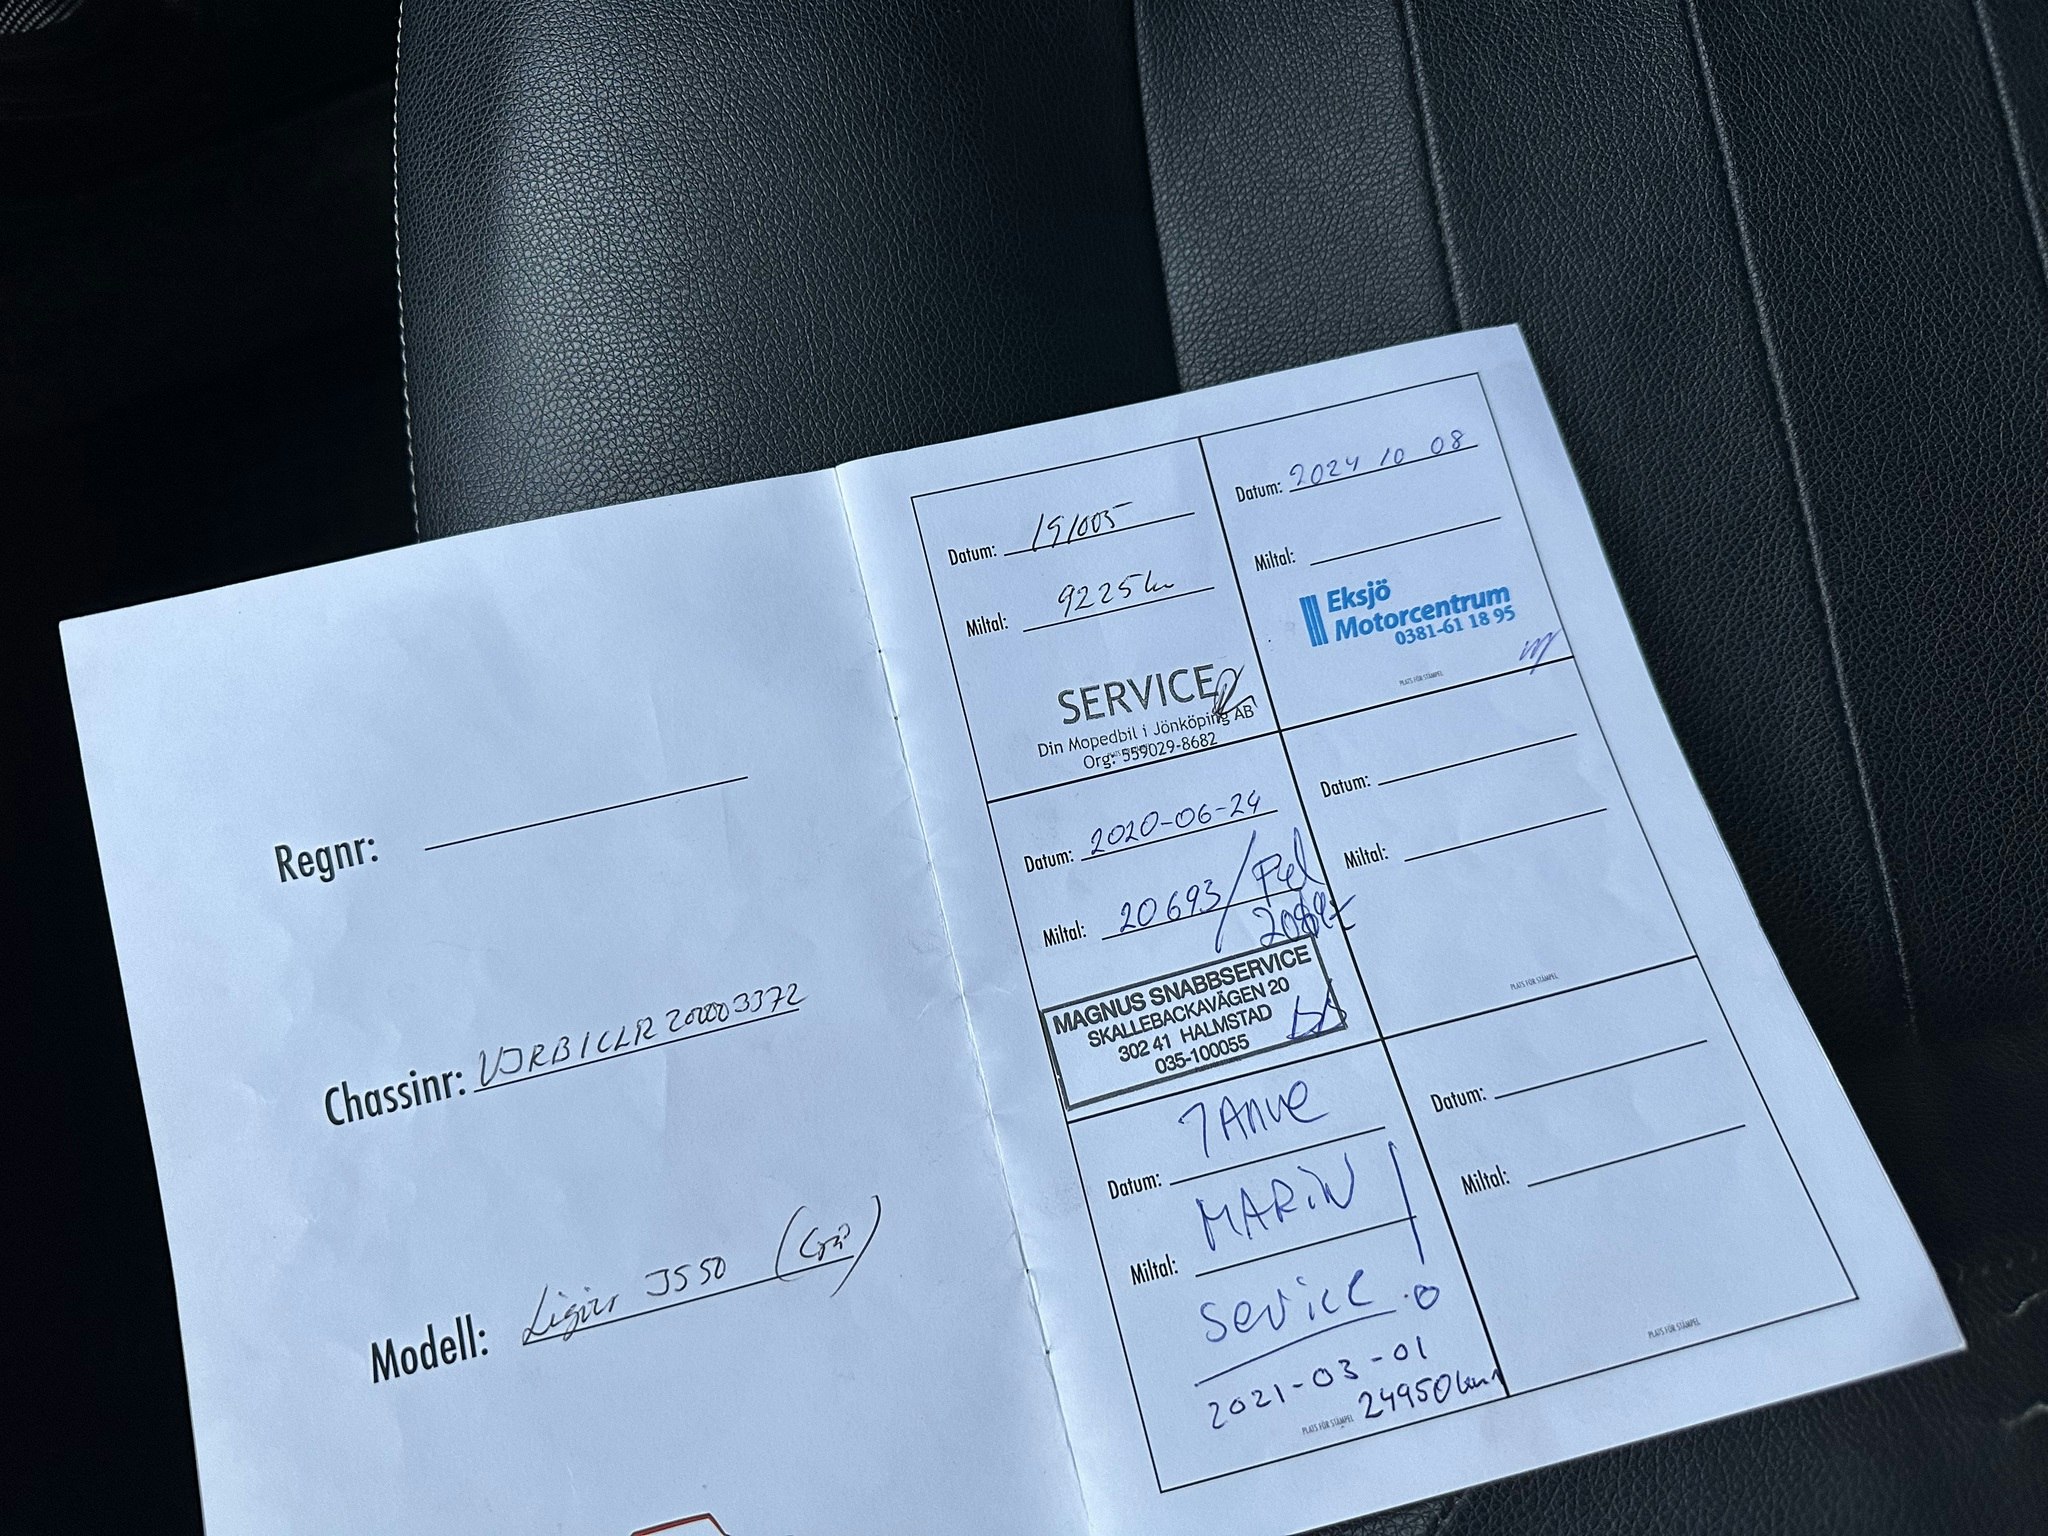 Regnr:
Chassinr: VJRB1CLR200003372
Modell: Ligier JS50 (Grå)
Datum: 191005
Miltal: 9225 km
SERVICE
Din Mopedbil i Jönköping AB
Org: 559029-8682
Datum: 2020-06-24
Miltal: 20693/
MAGNUS SNABBSERVICE
SKALLEBACKAVÄGEN 20
302 41 HALMSTAD
035-100055
Datum:
MARIN
Miltal:
Service
2021-03-01
PLATS FÖR STÄMPEL 24950 km
Datum: 2024 10 08
Miltal:
Eksjö
Motorcentrum
0381-61 18 95
PLATS FÖR STÄMPEL
Datum:
Miltal:
PLATS FÖR STÄMPEL
Datum:
Miltal:
PLATS FÖR STÄMPEL